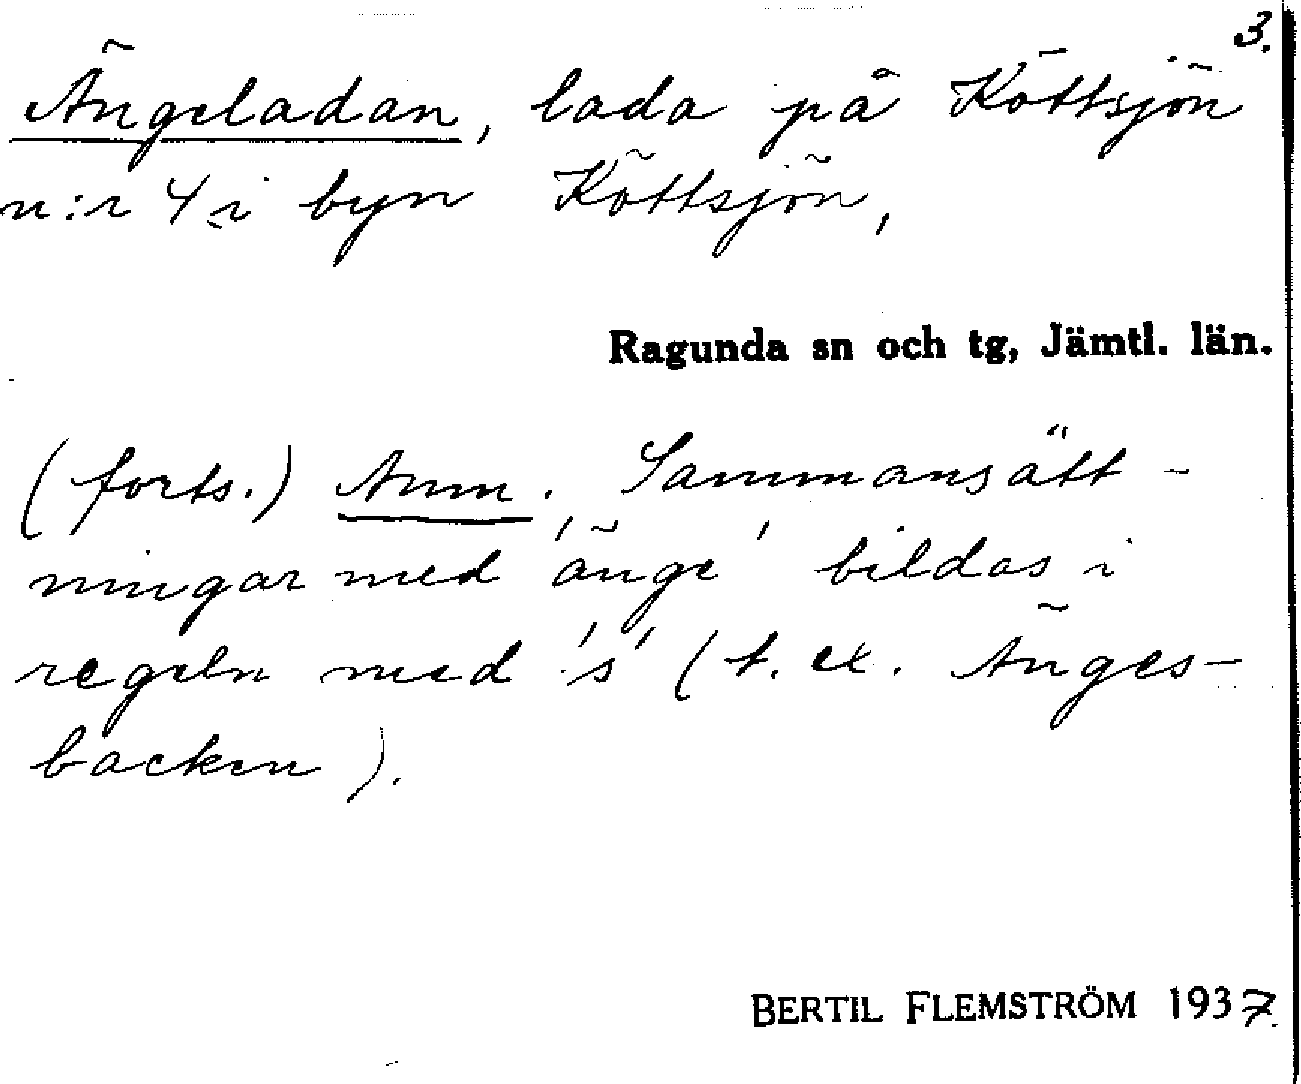 3.
Ängeladan, lada på Köttsjön
n:r 4 i byn Köttsjön,
Ragunda sn och tg, Jämtl. län.
(forts.) Anm. Sammansätt-
ningar med 'änge' bildas i
regeln med 's' (t. ex. Änges-
backen).
BERTIL FLEMSTRÖM 1937.